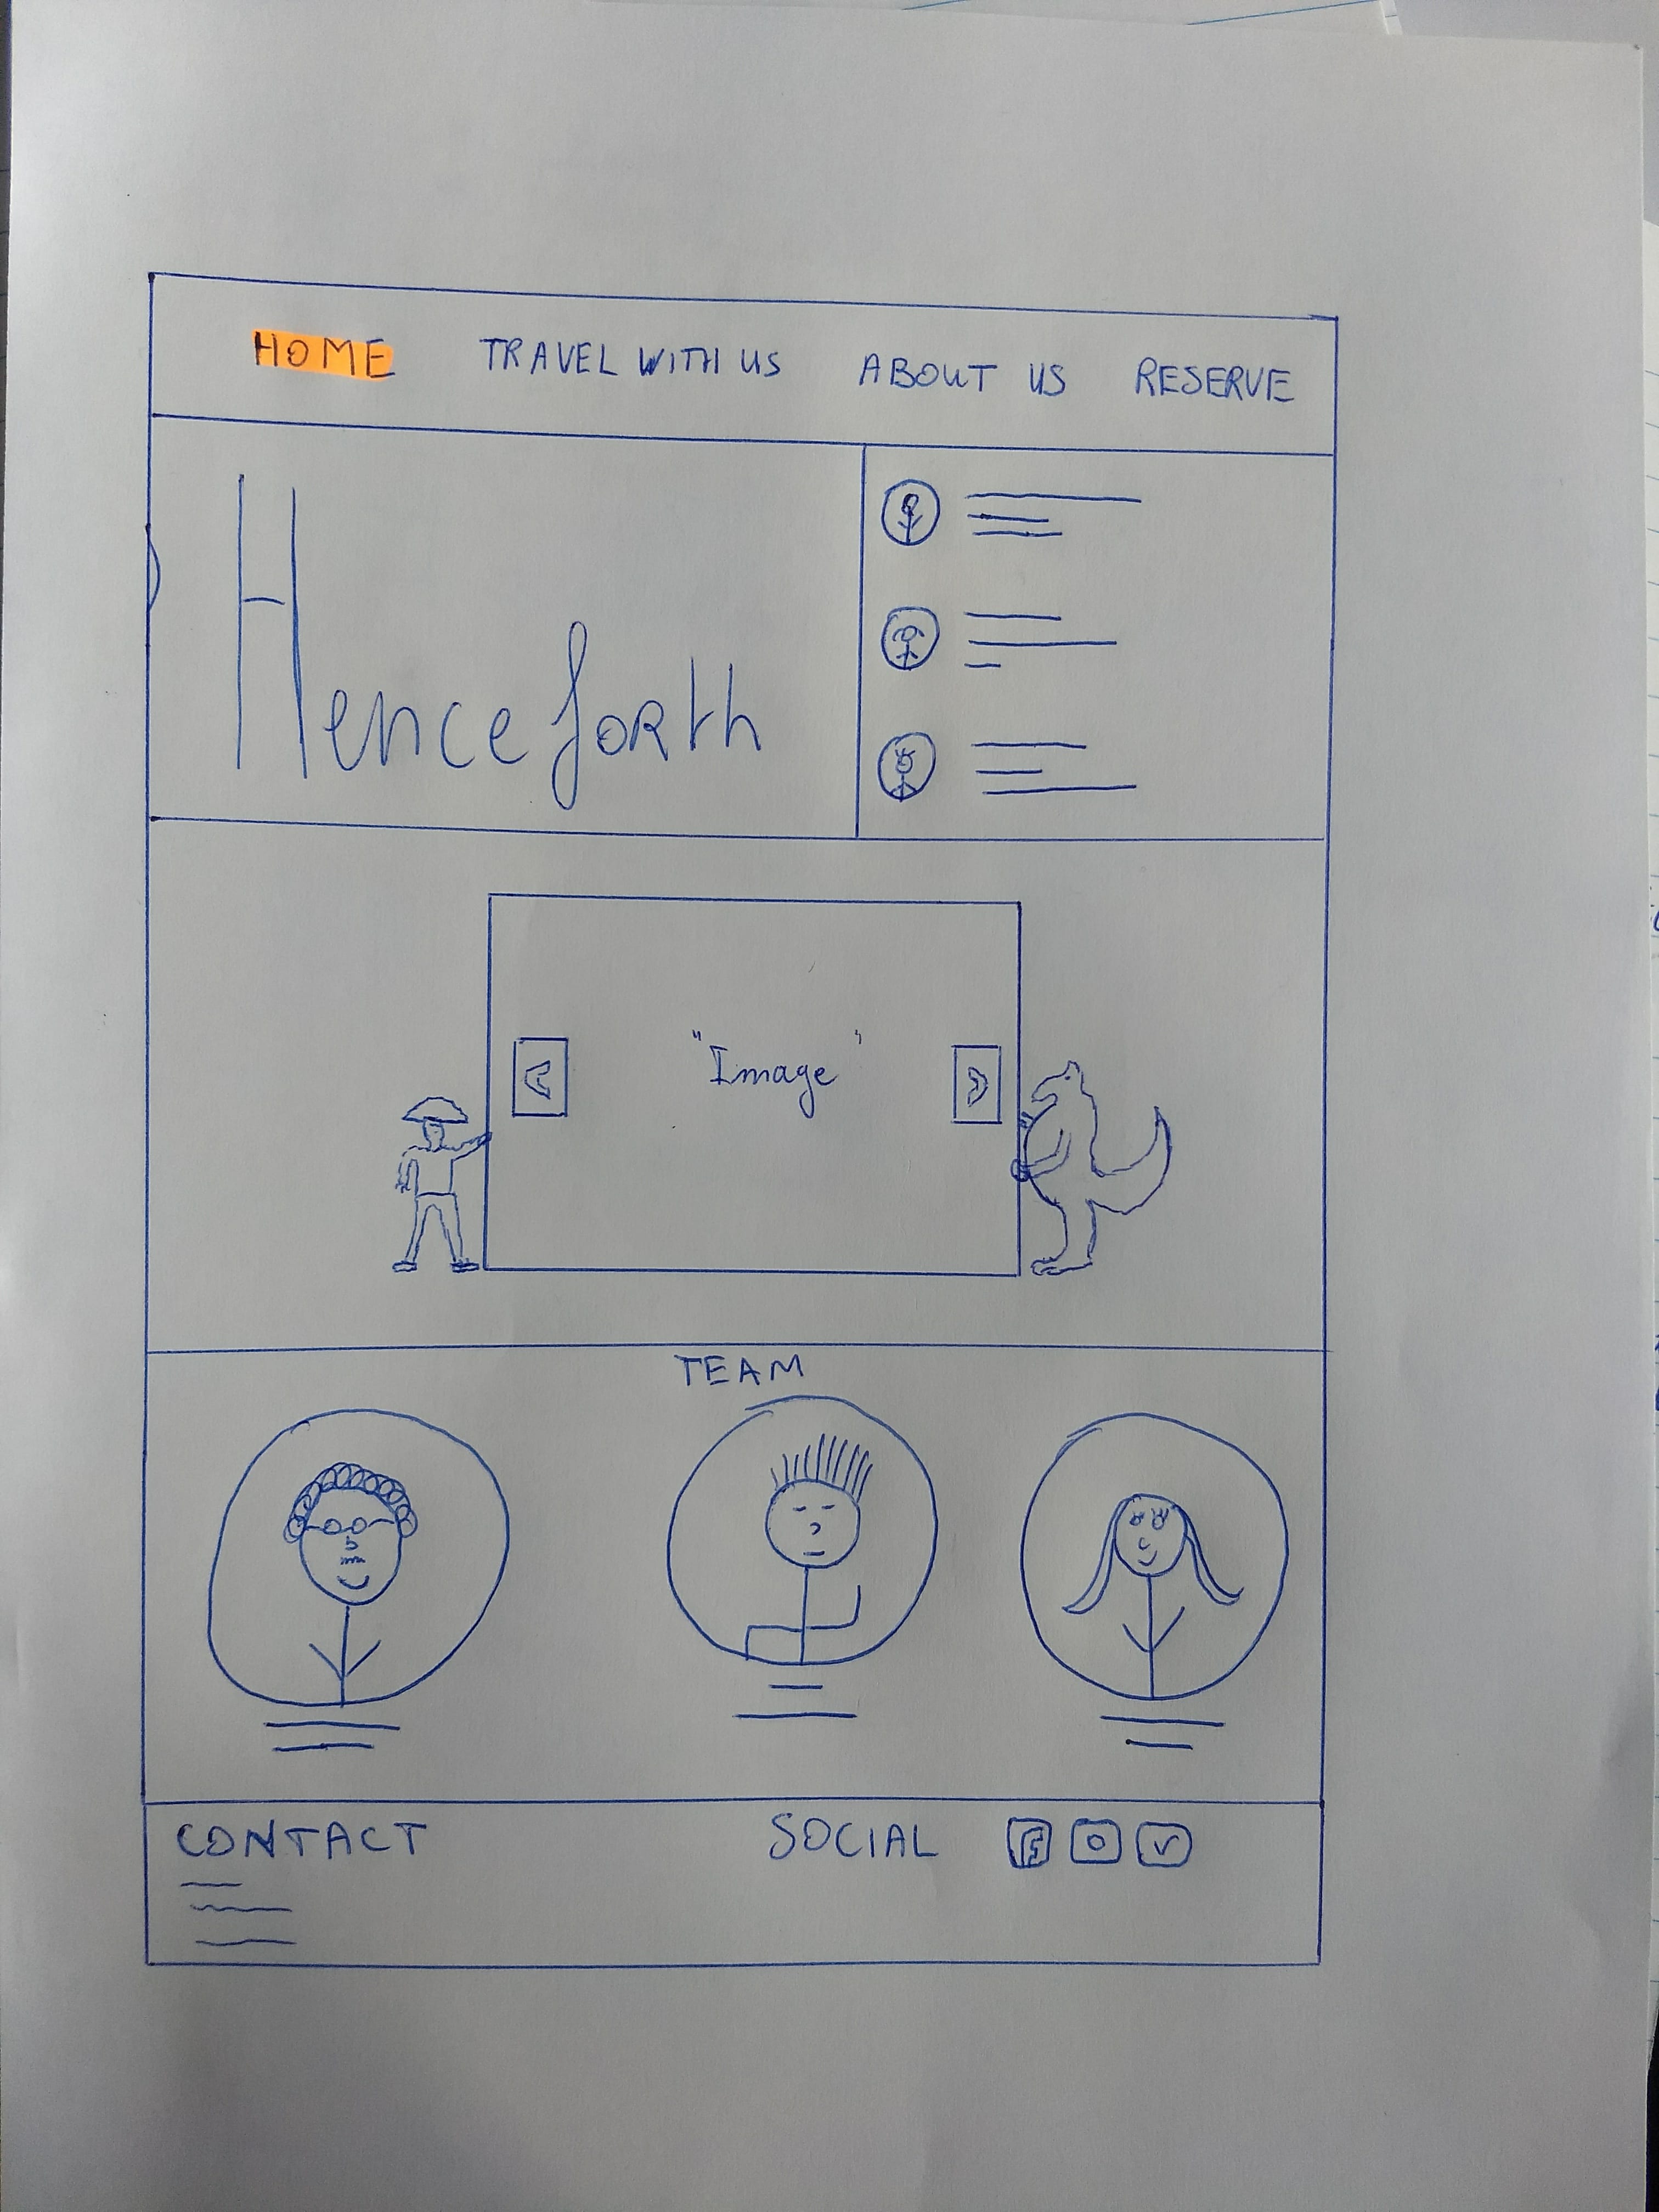 HOME TRAVEL WITH US ABOUT US RESERVE
Henceforth
"Image"
TEAM
CONTACT SOCIAL f